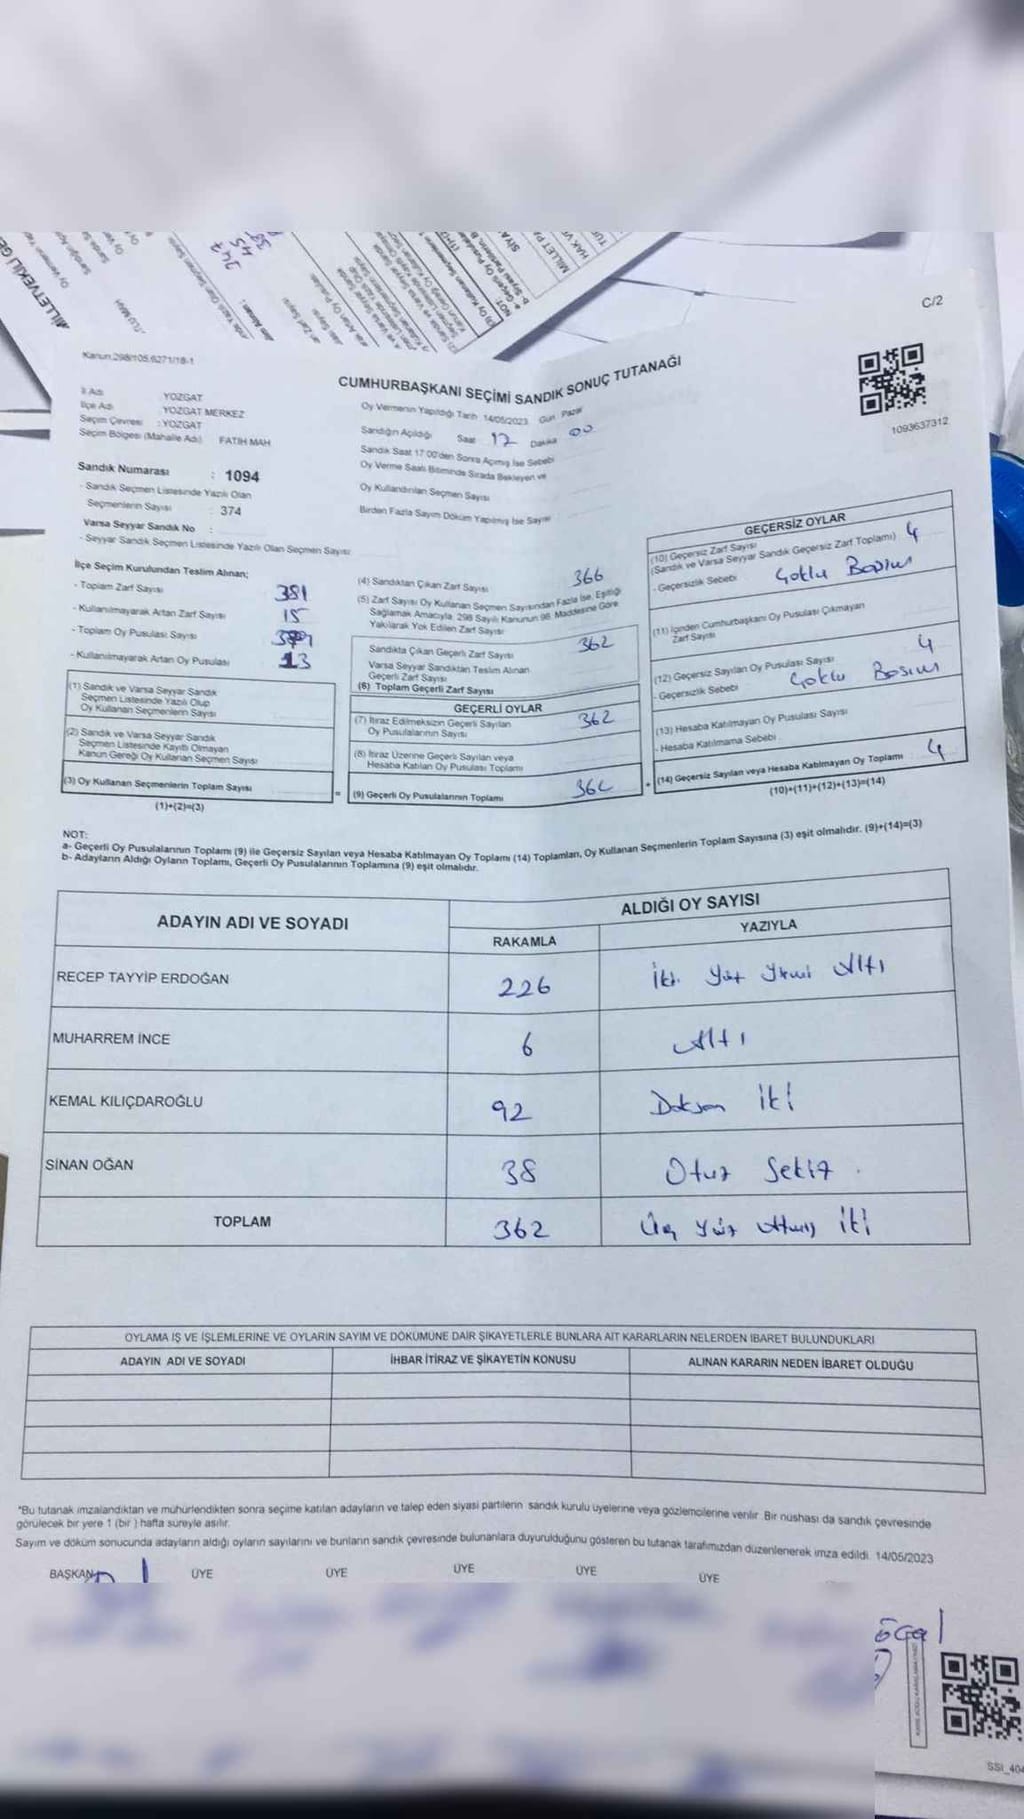 C/2
Kanun.298/105.6271/18-1
CUMHURBAŞKANI SEÇİMİ SANDIK SONUÇ TUTANAĞI
1093637312
İl Adı YOZGAT
İlçe Adı YOZGAT MERKEZ
Seçim Çevresi : YOZGAT
Seçim Bölgesi (Mahalle Adı) FATİH MAH
Sandık Numarası : 1094
- Sandık Seçmen Listesinde Yazılı Olan
Seçmenlerin Sayısı : 374
Varsa Seyyar Sandık No :
- Seyyar Sandık Seçmen Listesinde Yazılı Olan Seçmen Sayısı:
Oy Vermenin Yapıldığı Tarih 14/05/2023 Gün Pazar
Sandığın Açıldığı Saat 17 Dakika 00
Sandık Saat 17:00'den Sonra Açılmış İse Sebebi
Oy Verme Saati Bitiminde Sırada Bekleyen ve
Oy Kullandırılan Seçmen Sayısı
Birden Fazla Sayım Döküm Yapılmış İse Sayısı
İlçe Seçim Kurulundan Teslim Alınan;
- Toplam Zarf Sayısı 381
- Kullanılmayarak Artan Zarf Sayısı 15
- Toplam Oy Pusulası Sayısı
- Kullanılmayarak Artan Oy Pusulası 13
(1) Sandık ve Varsa Seyyar Sandık
Seçmen Listesinde Yazılı Olup
Oy Kullanan Seçmenlerin Sayısı
(2) Sandık ve Varsa Seyyar Sandık
Seçmen Listesinde Kayıtlı Olmayan
Kanun Gereği Oy Kullanan Seçmen Sayısı
(3) Oy Kullanan Seçmenlerin Toplam Sayısı
(1)+(2)=(3)
(4) Sandıktan Çıkan Zarf Sayısı 366
(5) Zarf Sayısı Oy Kullanan Seçmen Sayısından Fazla İse, Eşitliği
Sağlamak Amacıyla, 298 Sayılı Kanunun 98. Maddesine Göre
Yakılarak Yok Edilen Zarf Sayısı
Sandıkta Çıkan Geçerli Zarf Sayısı 362
Varsa Seyyar Sandıktan Teslim Alınan
Geçerli Zarf Sayısı
(6) Toplam Geçerli Zarf Sayısı
GEÇERLİ OYLAR
(7) İtiraz Edilmeksizin Geçerli Sayılan
Oy Pusulalarının Sayısı 362
(8) İtiraz Üzerine Geçerli Sayılan veya
Hesaba Katılan Oy Pusulası Toplamı
= (9) Geçerli Oy Pusulalarının Toplamı 362
GEÇERSİZ OYLAR
(10) Geçersiz Zarf Sayısı
(Sandık ve Varsa Seyyar Sandık Geçersiz Zarf Toplamı) 4
- Geçersizlik Sebebi Çoklu Basım
(11) İçinden Cumhurbaşkanı Oy Pusulası Çıkmayan
Zarf Sayısı
(12) Geçersiz Sayılan Oy Pusulası Sayısı 4
- Geçersizlik Sebebi Çoklu Basım
(13) Hesaba Katılmayan Oy Pusulası Sayısı
- Hesaba Katılmama Sebebi
+ (14) Geçersiz Sayılan veya Hesaba Katılmayan Oy Toplamı 4
(10)+(11)+(12)+(13)=(14)
NOT:
a- Geçerli Oy Pusulalarının Toplamı (9) ile Geçersiz Sayılan veya Hesaba Katılmayan Oy Toplamı (14) Toplamları, Oy Kullanan Seçmenlerin Toplam Sayısına (3) eşit olmalıdır. (9)+(14)=(3)
b- Adayların Aldığı Oyların Toplamı, Geçerli Oy Pusulalarının Toplamına (9) eşit olmalıdır.
ADAYIN ADI VE SOYADI ALDIĞI OY SAYISI
RAKAMLA YAZIYLA
RECEP TAYYİP ERDOĞAN 226 İki Yüz Yirmi Altı
MUHARREM İNCE 6 Altı
KEMAL KILIÇDAROĞLU 92 Doksan İki
SİNAN OĞAN 38 Otuz Sekiz
TOPLAM 362 Üç Yüz Altmış İki
OYLAMA İŞ VE İŞLEMLERİNE VE OYLARIN SAYIM VE DÖKÜMÜNE DAİR ŞİKAYETLERLE BUNLARA AİT KARARLARIN NELERDEN İBARET BULUNDUKLARI
ADAYIN ADI VE SOYADI İHBAR İTİRAZ VE ŞİKAYETİN KONUSU ALINAN KARARIN NEDEN İBARET OLDUĞU
*Bu tutanak imzalandıktan ve mühürlendikten sonra seçime katılan adayların ve talep eden siyasi partilerin sandık kurulu üyelerine veya gözlemcilerine verilir. Bir nüshası da sandık çevresinde
görülecek bir yere 1 (bir) hafta süreyle asılır.
Sayım ve döküm sonucunda adayların aldığı oyların sayılarını ve bunların sandık çevresinde bulunanlara duyurulduğunu gösteren bu tutanak tarafımızdan düzenlenerek imza edildi. 14/05/2023
BAŞKAN ÜYE ÜYE ÜYE ÜYE ÜYE
SSI_404